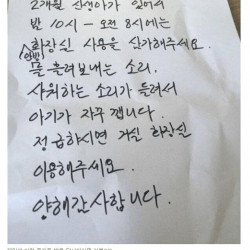 2개월 신생아가 있어서
밤 10시 - 오전 8시에는
화장실 사용을 삼가해주세요.
(안방)
물 흘려보내는 소리.
샤워하는 소리가 들려서
아기가 자꾸 깹니다.
정 급하시면 거실 화장실
이용해주세요.
양해감사합니다.